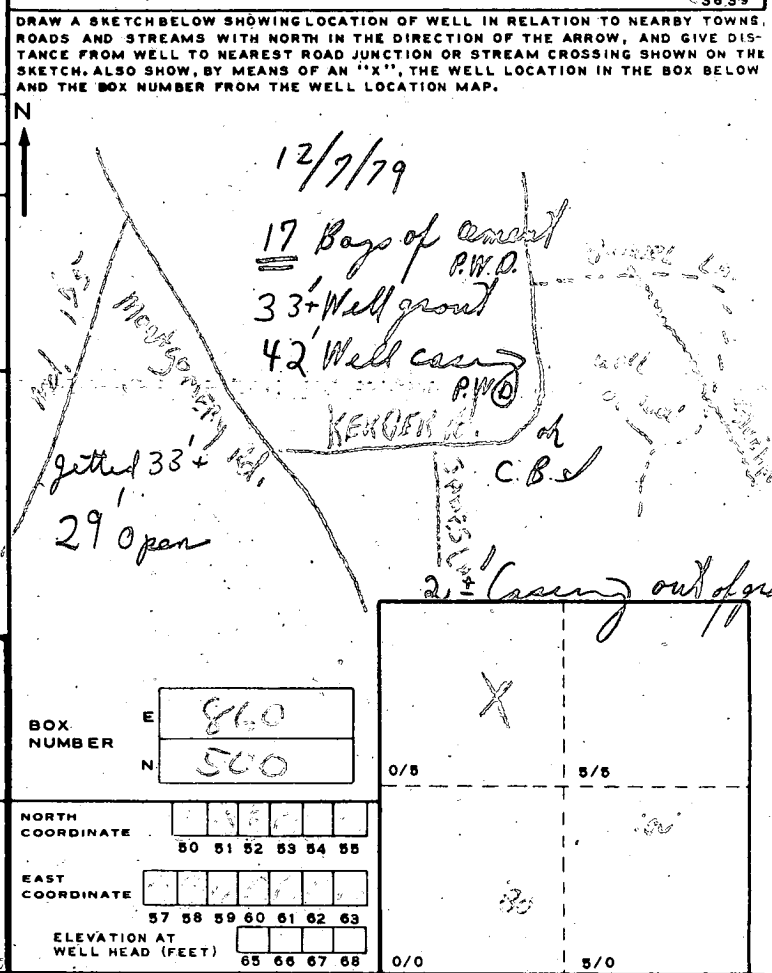 DRAW A SKETCH BELOW SHOWING LOCATION OF WELL IN RELATION TO NEARBY TOWNS,
ROADS AND STREAMS WITH NORTH IN THE DIRECTION OF THE ARROW, AND GIVE DIS-
TANCE FROM WELL TO NEAREST ROAD JUNCTION OR STREAM CROSSING SHOWN ON THE
SKETCH. ALSO SHOW, BY MEANS OF AN "X", THE WELL LOCATION IN THE BOX BELOW
AND THE BOX NUMBER FROM THE WELL LOCATION MAP.
N
12/7/79
17 Bags of cement
P.W.D.
33'+ Well grout
42' Well casing
P.W.D
Md.
Montgomery Rd.
ok
C.B.
Jetted 33'+
29' Open
2'± Casing out of
X
BOX NUMBER
E 860
N 500
0/5 5/5
NORTH COORDINATE
50 51 52 53 54 55
EAST COORDINATE
57 58 59 60 61 62 63
ELEVATION AT WELL HEAD (FEET)
65 66 67 68
0/0 5/0